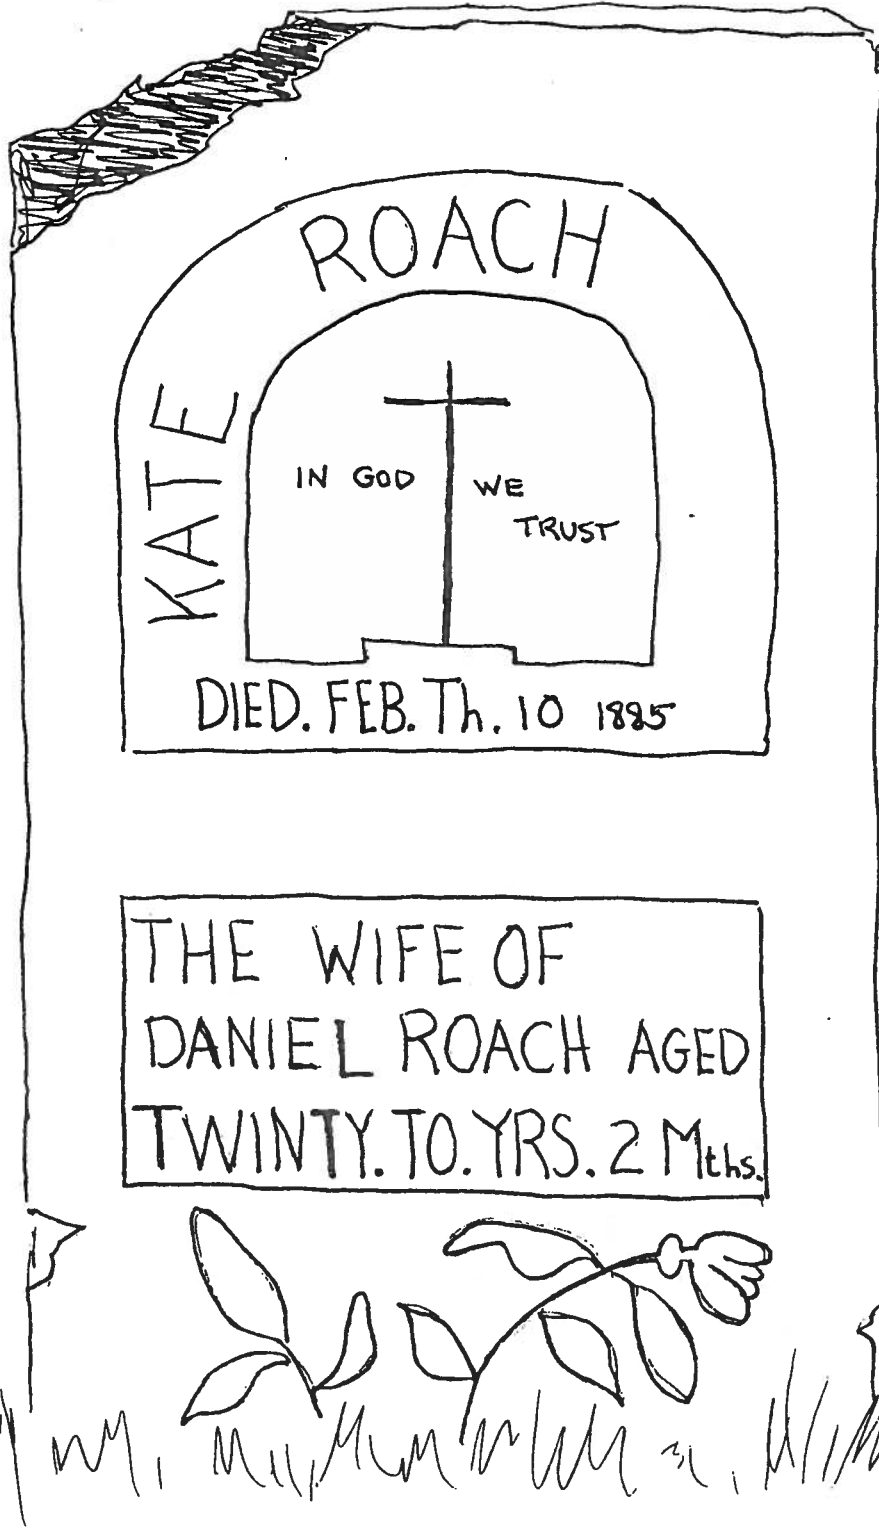 KATE ROACH
IN GOD WE
TRUST
DIED. FEB. Th. 10 1885
THE WIFE OF
DANIEL ROACH AGED
TWINTY. TO. YRS. 2 Mths.